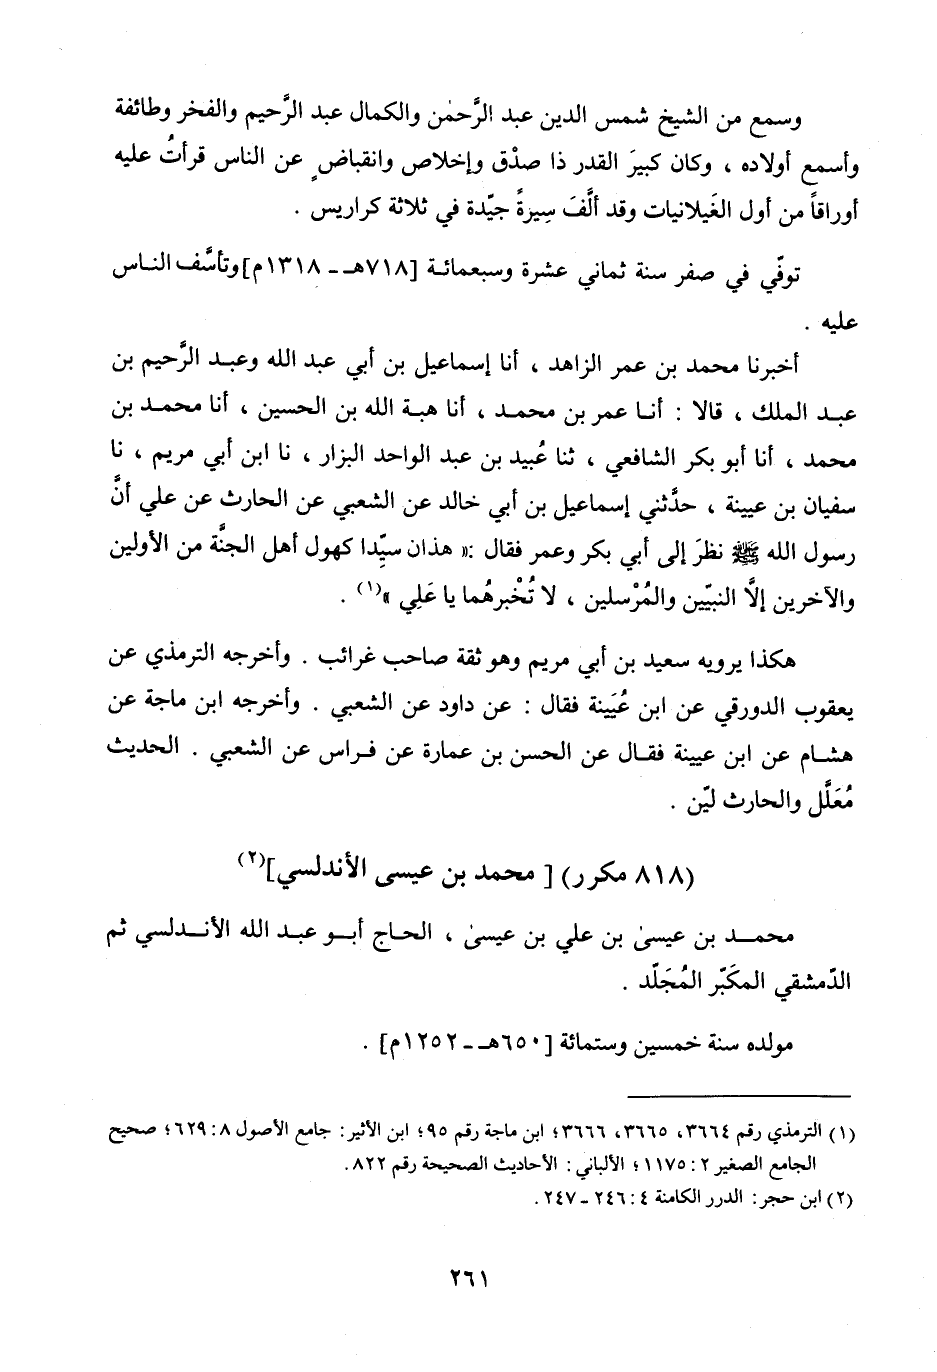 وسمع من الشيخ شمس الدين عبد الرَّحمٰن والكمال عبد الرَّحيم والفخر وطائفة
وأسمع أولاده ، وكان كبيرَ القدر ذا صدْق وإخلاص وانقباضٍ عن الناس قرأتُ عليه
أوراقاً من أول الغَيلانيات وقد ألَّفَ سِيرةً جيّدة في ثلاثة كراريس .
توفّي في صفر سنة ثماني عشرة وسبعمائة [٧١٨هـ ـ ١٣١٨م] وتأسَّف الناس
عليه .
أخبرنا محمد بن عمر الزاهد ، أنا إسماعيل بن أبي عبد الله وعبد الرَّحيم بن
عبد الملك ، قالا : أنا عمر بن محمد ، أنا هبة الله بن الحسين ، أنا محمد بن
محمد ، أنا أبو بكر الشافعي ، ثنا عُبيد بن عبد الواحد البزار ، نا ابن أبي مريم ، نا
سفيان بن عيينة ، حدَّثني إسماعيل بن أبي خالد عن الشعبي عن الحارث عن علي أنَّ
رسول الله ﷺ نظرَ إلى أبي بكر وعمر فقال :« هذان سيِّدا كهول أهل الجنَّة من الأولين
والآخرين إلَّا النبيّين والمُرْسلين ، لا تُخْبرهُما يا عَلِي »(١) .
هكذا يرويه سعيد بن أبي مريم وهو ثقة صاحب غرائب . وأخرجه الترمذي عن
يعقوب الدورقي عن ابن عُيَينة فقال : عن داود عن الشعبي . وأخرجه ابن ماجة عن
هشام عن ابن عيينة فقال عن الحسن بن عمارة عن فراس عن الشعبي . الحديث
مُعَلَّل والحارث ليّن .
(٨١٨ مكرر) [ محمد بن عيسى الأندلسي](٢)
محمد بن عيسىٰ بن علي بن عيسىٰ ، الحاج أبو عبد الله الأندلسي ثم
الدّمشقي المكَبّر المُجَلّد .
مولده سنة خمسين وستمائة [٦٥٠هـ ـ ١٢٥٢م] .
(١) الترمذي رقم ٣٦٦٤، ٣٦٦٥، ٣٦٦٦؛ ابن ماجة رقم ٩٥؛ ابن الأثير: جامع الأصول ٨: ٦٢٩؛ صحيح
الجامع الصغير ٢: ١١٧٥؛ الألباني: الأحاديث الصحيحة رقم ٨٢٢.
(٢) ابن حجر: الدرر الكامنة ٤: ٢٤٦ ـ ٢٤٧.
٢٦١